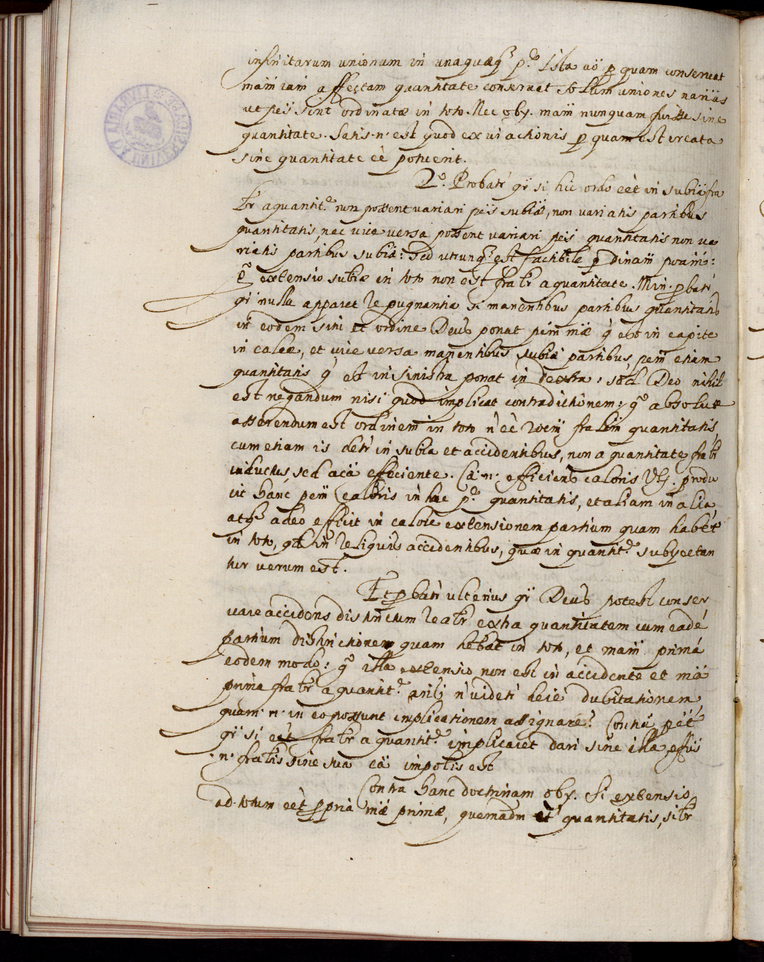 infinitarum unionum in unaquaeq; p.e Ista aõ p quam conservat
mãm iam affectam quantitate conservat solum uniones narias
ut pẽs sint ordinatae in toto. Nec oby. mam nunquam fuisse sine
quantitate. Satis .n. est quod ex vi actionis p quam est creata
sine quantitate eẽ potuerit.
2.o Probatr qã si hic ordo eẽt in subia fra
ltr a quantit.e non possent variari pẽs subiae, non variatis partibus
quantitatis, nec vice versa possent variari pẽs quantitatis non va
riatis partibus subiae: sed utrunq; est factibile p dinam poãm:
g.o extensio subiae in toto non est fralr a quantitate. Min. pbatr
qã nulla apparet repugnantia si manentibus partibus quantitatis
in eodem situ et ordine Deus ponat pẽm mae q̃ est in capite
in calce, et vice versa manentibus subiae partibus pẽm etiam
quantitatis q̃ est in sinistra ponat in dextra: sed Deo nihil
est negandum nisi quod implicat contradictionem: g.o absolute
asserendum est ordinem in toto n̄ eẽ roẽm fralem quantitatis,
cum etiam is detr in subia et accidentibus, non a quantitate fralr
inductus, sed a cã efficiente. Cã .n. efficiens caloris V.g. produ
cit hanc pẽm caloris in hac p.e quantitatis, et aliam in alia
atq; adeo efficit in calore extensionem partium quam habet
in toto, qd in reliquis accidentibus, quae in quantit.e subiectan
tur verum est.
Et pbatr ulterius qã Deus potest conser
vare accidens distinctum realr extra quantitatem cum eadẽ
partium distinctionem quam habebat in toto, et mam primã
eodem modo: g.o illa extensio non est in accidente et mã
prima fralr a quantit.e
quam .n. in eo possunt implicationem assignare? Contra
qã si eẽt fralr a quantit.e implicaret dari sine illa effũs
.n. fralis sine sua cã impolis est
Contra hanc doctrinam oby. Si extensio
ad totum eẽt ppria mae primae, quemadm et quantitatis,